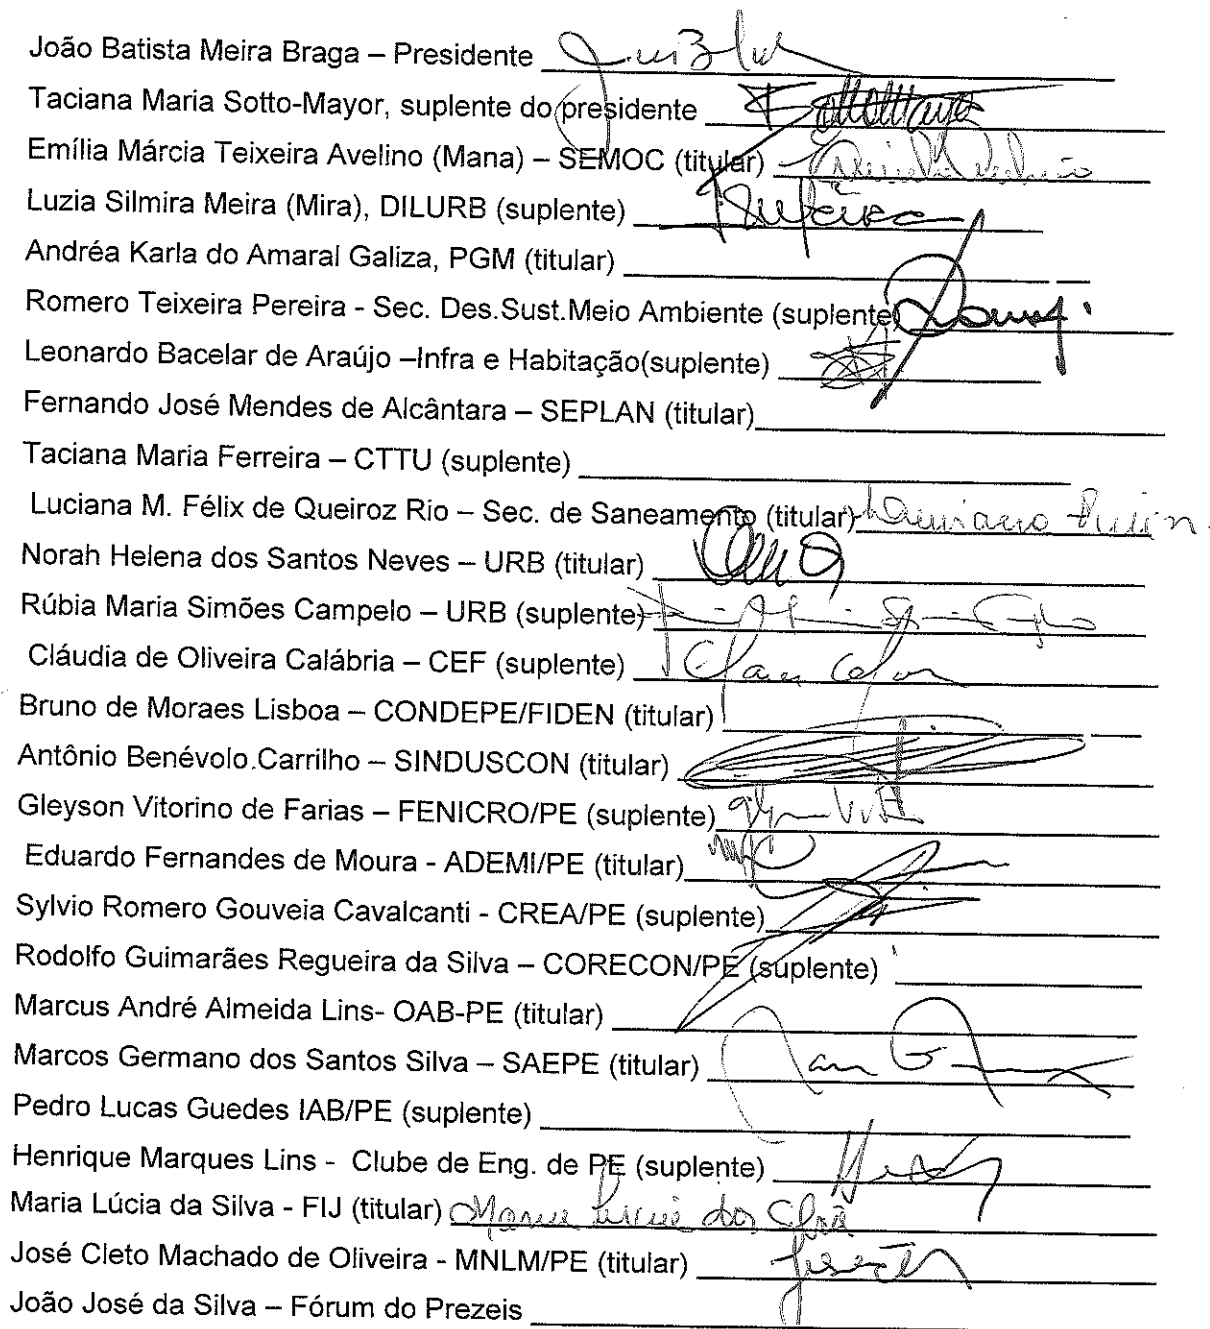 João Batista Meira Braga – Presidente
Taciana Maria Sotto-Mayor, suplente do presidente
Emília Márcia Teixeira Avelino (Mana) – SEMOC (titular)
Luzia Silmira Meira (Mira), DILURB (suplente)
Andréa Karla do Amaral Galiza, PGM (titular)
Romero Teixeira Pereira - Sec. Des.Sust.Meio Ambiente (suplente)
Leonardo Bacelar de Araújo –Infra e Habitação(suplente)
Fernando José Mendes de Alcântara – SEPLAN (titular)
Taciana Maria Ferreira – CTTU (suplente)
Luciana M. Félix de Queiroz Rio – Sec. de Saneamento (titular)
Norah Helena dos Santos Neves – URB (titular)
Rúbia Maria Simões Campelo – URB (suplente)
Cláudia de Oliveira Calábria – CEF (suplente)
Bruno de Moraes Lisboa – CONDEPE/FIDEN (titular)
Antônio Benévolo.Carrilho – SINDUSCON (titular)
Gleyson Vitorino de Farias – FENICRO/PE (suplente)
Eduardo Fernandes de Moura - ADEMI/PE (titular)
Sylvio Romero Gouveia Cavalcanti - CREA/PE (suplente)
Rodolfo Guimarães Regueira da Silva – CORECON/PE (suplente)
Marcus André Almeida Lins- OAB-PE (titular)
Marcos Germano dos Santos Silva – SAEPE (titular)
Pedro Lucas Guedes IAB/PE (suplente)
Henrique Marques Lins - Clube de Eng. de PE (suplente)
Maria Lúcia da Silva - FIJ (titular)
José Cleto Machado de Oliveira - MNLM/PE (titular)
João José da Silva – Fórum do Prezeis